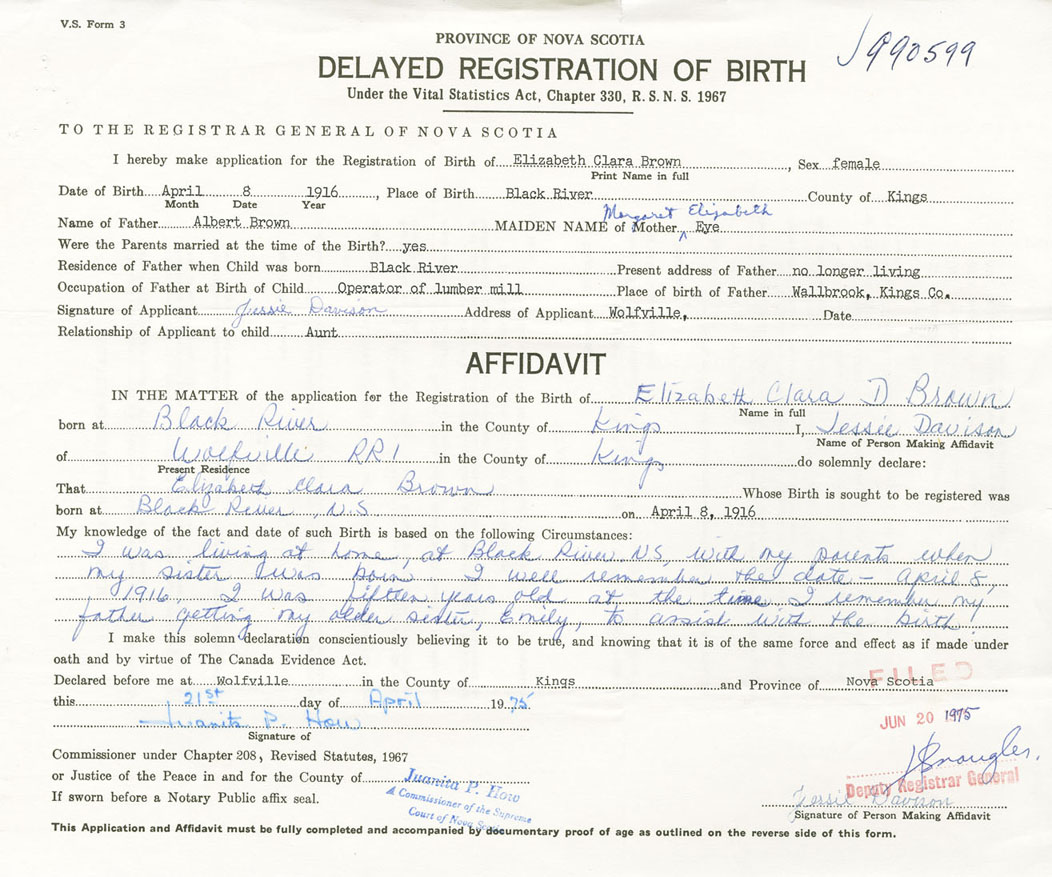 V.S. Form 3
PROVINCE OF NOVA SCOTIA
990599
DELAYED REGISTRATION OF BIRTH
Under the Vital Statistics Act, Chapter 330, R. S. N. S. 1967
TO THE REGISTRAR GENERAL OF NOVA SCOTIA
I hereby make application for the Registration of Birth of Elizabeth Clara Brown, Sex female
Print Name in full
Date of Birth April 8 1916, Place of Birth Black River County of Kings
Month Date Year
Margaret Elizabeth
Name of Father Albert Brown MAIDEN NAME of Mother Eye
Were the Parents married at the time of the Birth? yes
Residence of Father when Child was born Black River Present address of Father no longer living
Occupation of Father at Birth of Child Operator of lumber mill Place of birth of Father Wallbrook, Kings Co.
Signature of Applicant Jessie Davison Address of Applicant Wolfville, Date
Relationship of Applicant to child Aunt
AFFIDAVIT
IN THE MATTER of the application for the Registration of the Birth of Elizabeth Clara D Brown
Name in full
born at Black River in the County of Kings I, Jessie Davison
Name of Person Making Affidavit
of Wolfville RR1 in the County of Kings do solemnly declare:
Present Residence
That Elizabeth Clara Brown Whose Birth is sought to be registered was
born at Black River, N.S on April 8, 1916
My knowledge of the fact and date of such Birth is based on the following Circumstances:
I was living at home, at Black River NS, with my parents when
my sister was born. I well remember the date - April 8,
1916. I was fifteen years old at the time I remember my
father getting my older sister, Emily, to assist with the birth!
I make this solemn declaration conscientiously believing it to be true, and knowing that it is of the same force and effect as if made under
oath and by virtue of The Canada Evidence Act.
Declared before me at Wolfville in the County of Kings and Province of Nova Scotia
FILED
this 21st day of April 1975
JUN 20 1975
Juanita P. How
Signature of
Commissioner under Chapter 208, Revised Statutes, 1967
or Justice of the Peace in and for the County of
Juanita P. How
A Commissioner of the Supreme
Court of Nova Scotia
If sworn before a Notary Public affix seal.
Deputy Registrar General
Jessie Davison
Signature of Person Making Affidavit
This Application and Affidavit must be fully completed and accompanied by documentary proof of age as outlined on the reverse side of this form.